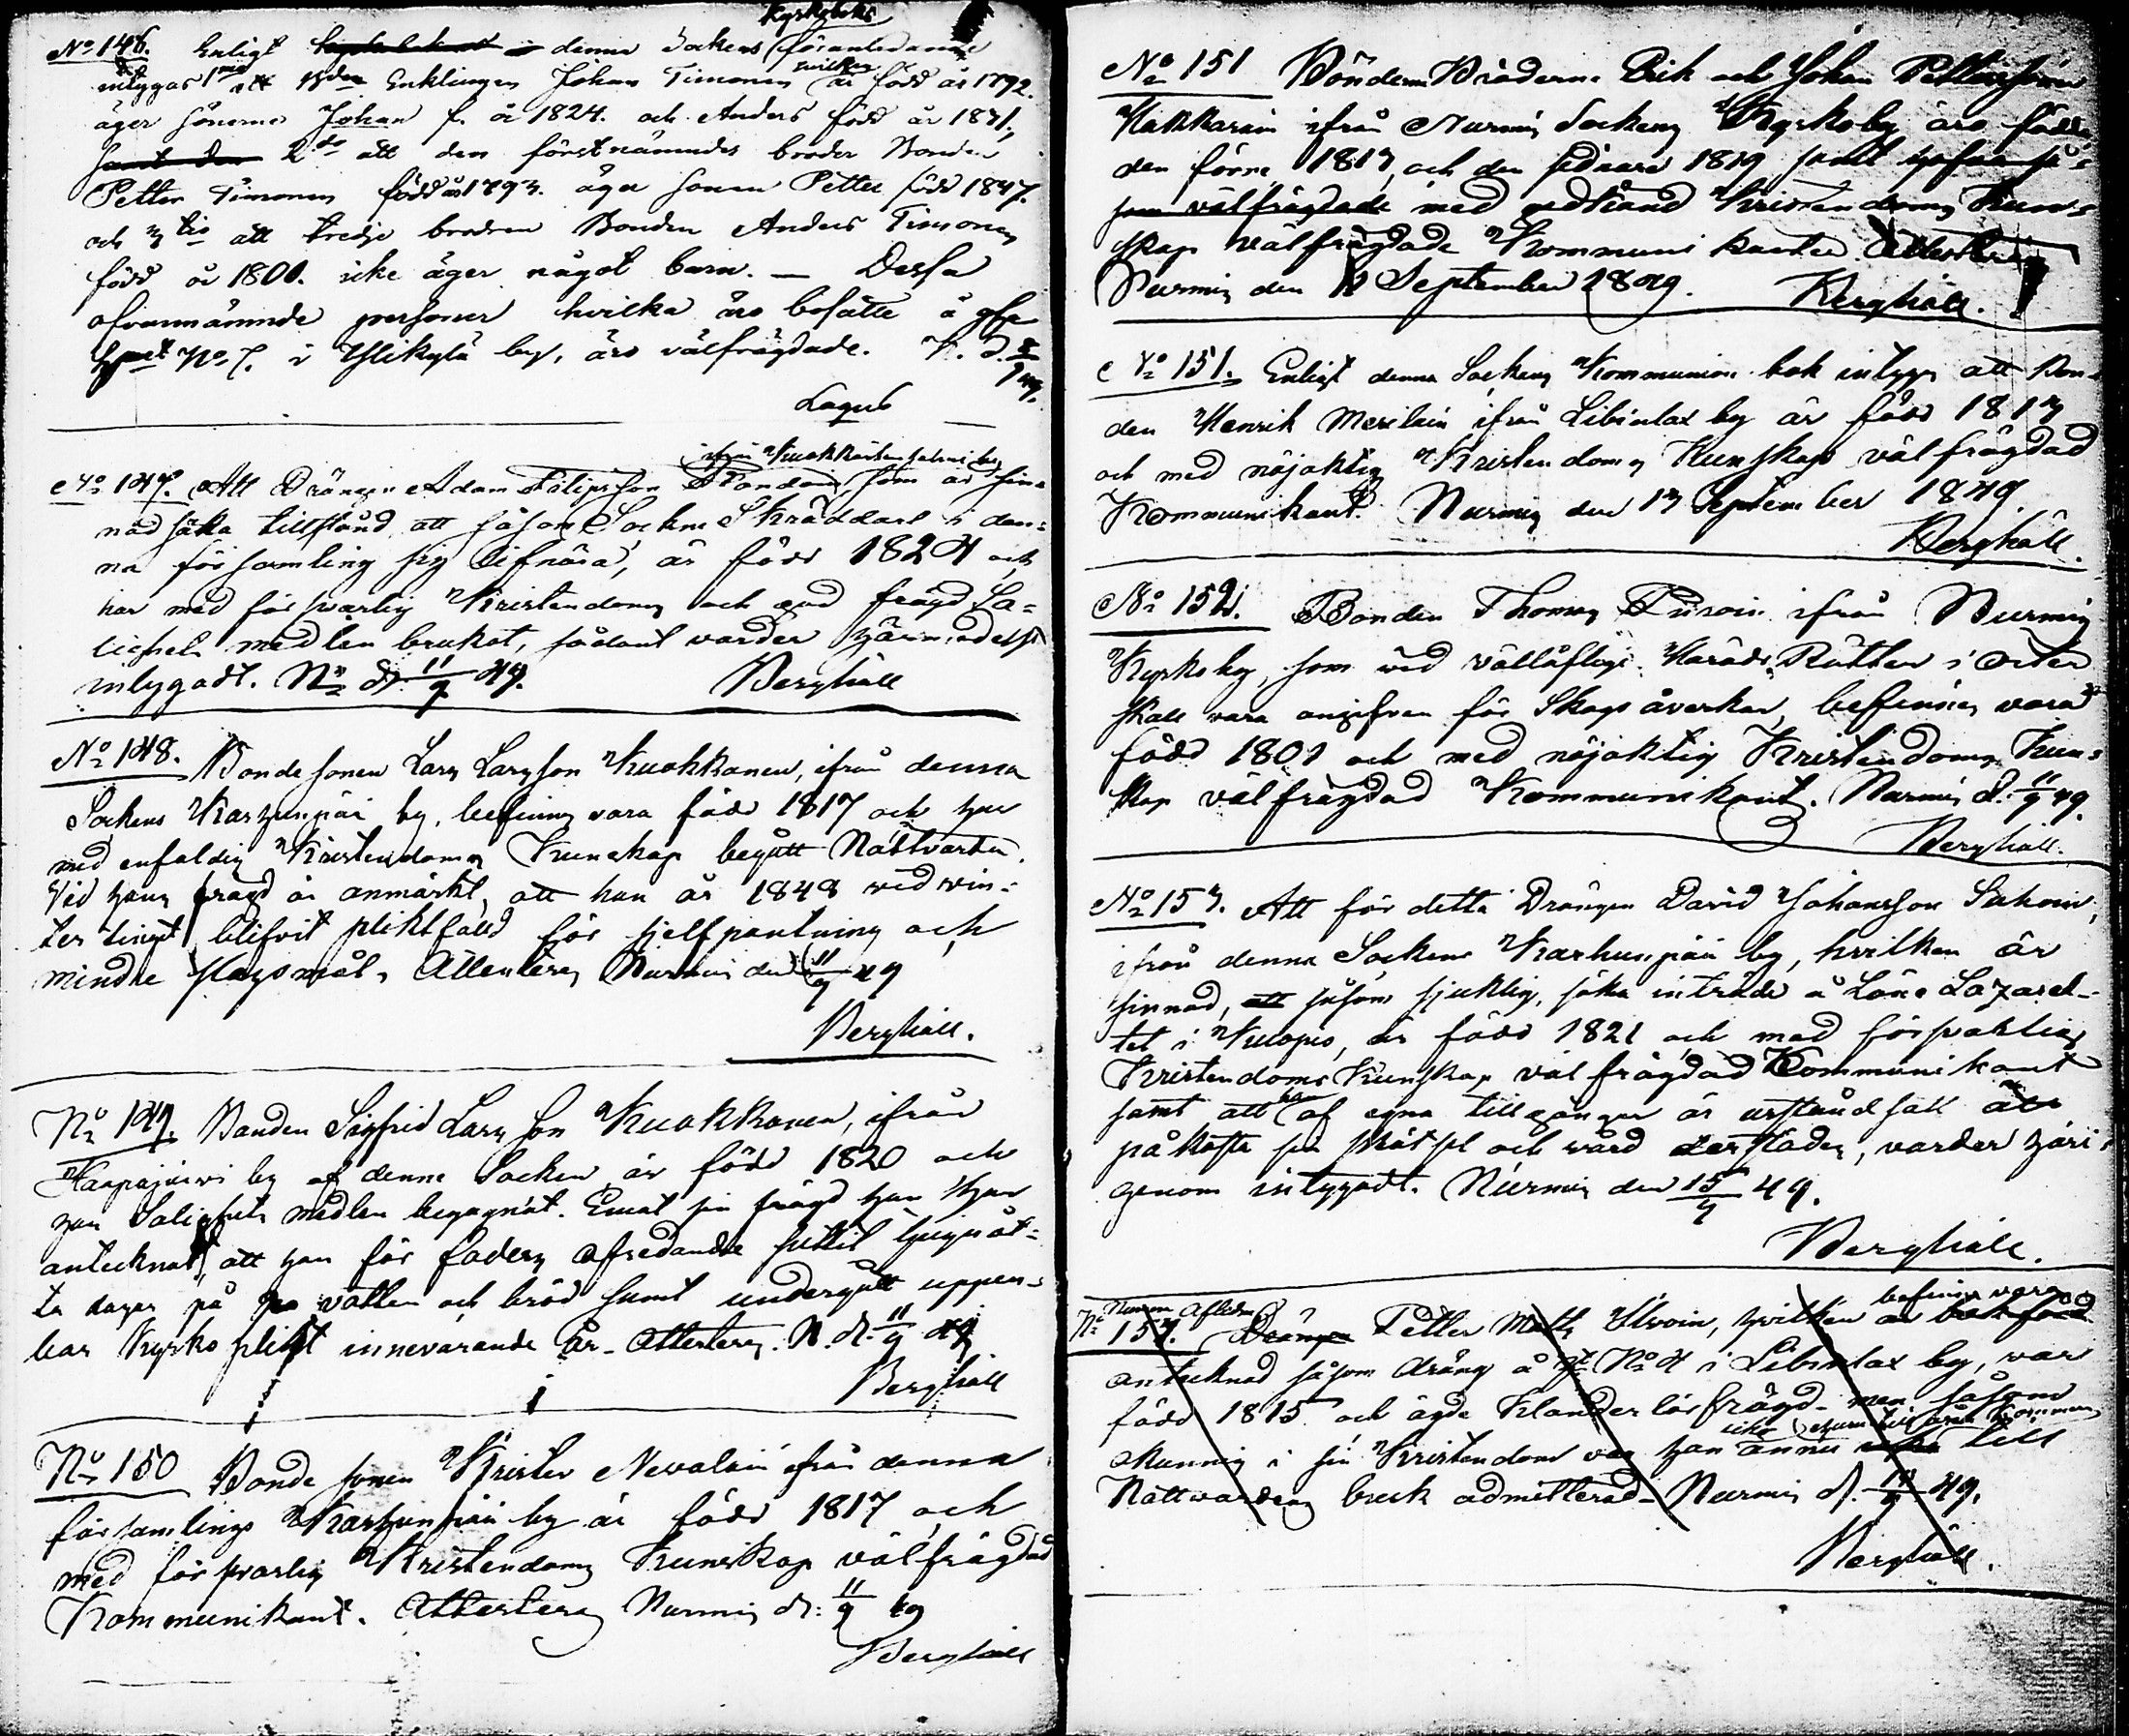 Kyrkoboks
No 146. Enligt denna Sockens föranledande
intygas 1mo att Enklingen Johan Timonen hvilken är född år 1792.
äger sönerne Johan f. år 1824. och Anders född år 1831,
samt den 2do att den förstnämndes broder Bonden
Petter Timonen född år 1793. äger sonen Petter född 1847.
och 3tio att tredje brodren Bonden Anders Timonen
född år 1801. icke äger något barn. — Dessa
ofvannämnde personer hvilka äro bosatte å
No 7. i Ylikylä by, äro välfrägdade. N. d.
Lagus
ifrån Kuokkastensalmi by
No 147. Att Drängen Adam Filipsson, som är sin-
nad söka tillstånd att såsom Sockne Skräddare i den-
na församling sig lifnära, är född 1824 och
har med försvarlig Kristendoms och god frägd Sa-
lighets medlen brukat, sådant varder härmedelst
intygadt. Ns d. 11/9 49. Berghäll
No 148. Bonde sonen Lars Larsson Kuokkanen, ifrån denna
Sockens Karhunpää by, befinnes vara född 1817 och har
med enfaldig Kristendoms Kunskap begått Nattvarden.
Vid hans frägd är anmärkt, att han år 1848 vid vin-
ter tinget blifvit pliktfälld för sjelfpantning och
mindre slagsmål. Attesterar Nurmis den 11/9 49
Berghäll.
No 149. Bonden Sigfrid Larsson Kuokkanen, ifrån
Haapajärvi by af denne Socken är född 1820 och
har Salighets medlen begagnat. Emot sin frägd har han
antecknadt, att han för faders afredande suttit tjuguåt-
ta dagar på vatten och bröd samt undergått uppen-
bar Kyrko plikt innevarande år. Attesteras. N. d. 11/9 49
Berghäll
No 150 Bonde sonen Krister Nevalain ifrån denna
församlings Karhunpää by är född 1817 och
med försvarlig Kristendoms Kunskap välfrägdad
Kommunikant. Attesterar Nurmis d: 11/9 49
Berghäll
No 151 Bönderne Bröderne Erik och Johan Pettersöner
Hakkarain ifrån Nurmis Sockens Kyrkoby äro födde
den förre 1813, och den sednare 1819 samt hafva så-
som välfrägdade med godkänd Kristendoms Kun-
skap välfrägdade Kommunikanter. Attesteras
Nurmis den 11 September 1849. Berghäll.
No 151. Enligt denna Sockens Kommunion bok intygas att Bon-
den Henrik Meriläin ifrån Libinlax by är född 1813
och med nöjaktig Kristendoms Kunskap välfrägdad
Kommunikant. Nurmis den 13 September 1849.
Berghäll.
No 152. Bonden Thomas Piiroin ifrån Nurmis
Kyrkoby, som vid välloflige Härads Rätten i orten
skall vara angifven för Skogs åverkan, befinnes vara
född 1801 och med nöjaktig Kristendoms Kun-
skap välfrägdad Kommunikant. Nurmis d. 11/9 49.
Berghäll.
No 153. Att för detta Drängen David Johansson Sahoin,
ifrån denna Sockens Karhunpää by, hvilken är
sinnad, att såsom sjuklig, söka inträde å Läne Lazaret-
tet i Kuopio, är född 1821 och med försvarlig
Kristendoms Kunskap välfrägdad Kommunikant
samt att han af egna tillgångar är urståndsatt att
påkosta sig skötsel och vård derstädes, varder häri-
genom intygadt. Nurmis den 15/9 49.
Berghäll.
No 154. Numera Aflidne Drängen Petter Matts Ilvoin, hvilken befinnes vara
antecknad såsom dräng å No 4 i Libinlax by, var
född 1815 och ägde Klanderlös frägd- men såsom
okunnig i sin Kristendom var han ännu icke till
Nattvardens bruk admitterad- Nurmis d. 49.
Berghäll.